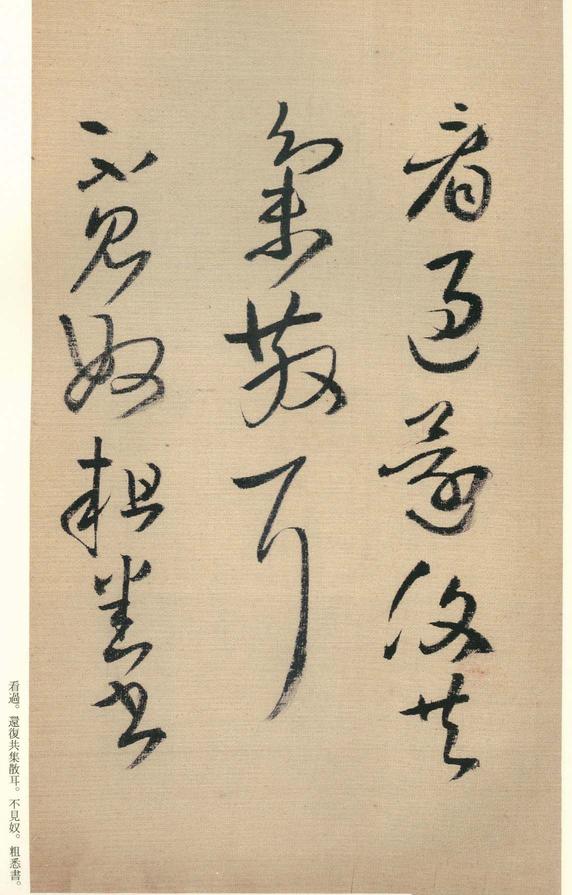 看過還復共
集散耳
不見奴粗悉書
看過。還復共集散耳。不見奴。粗悉書。